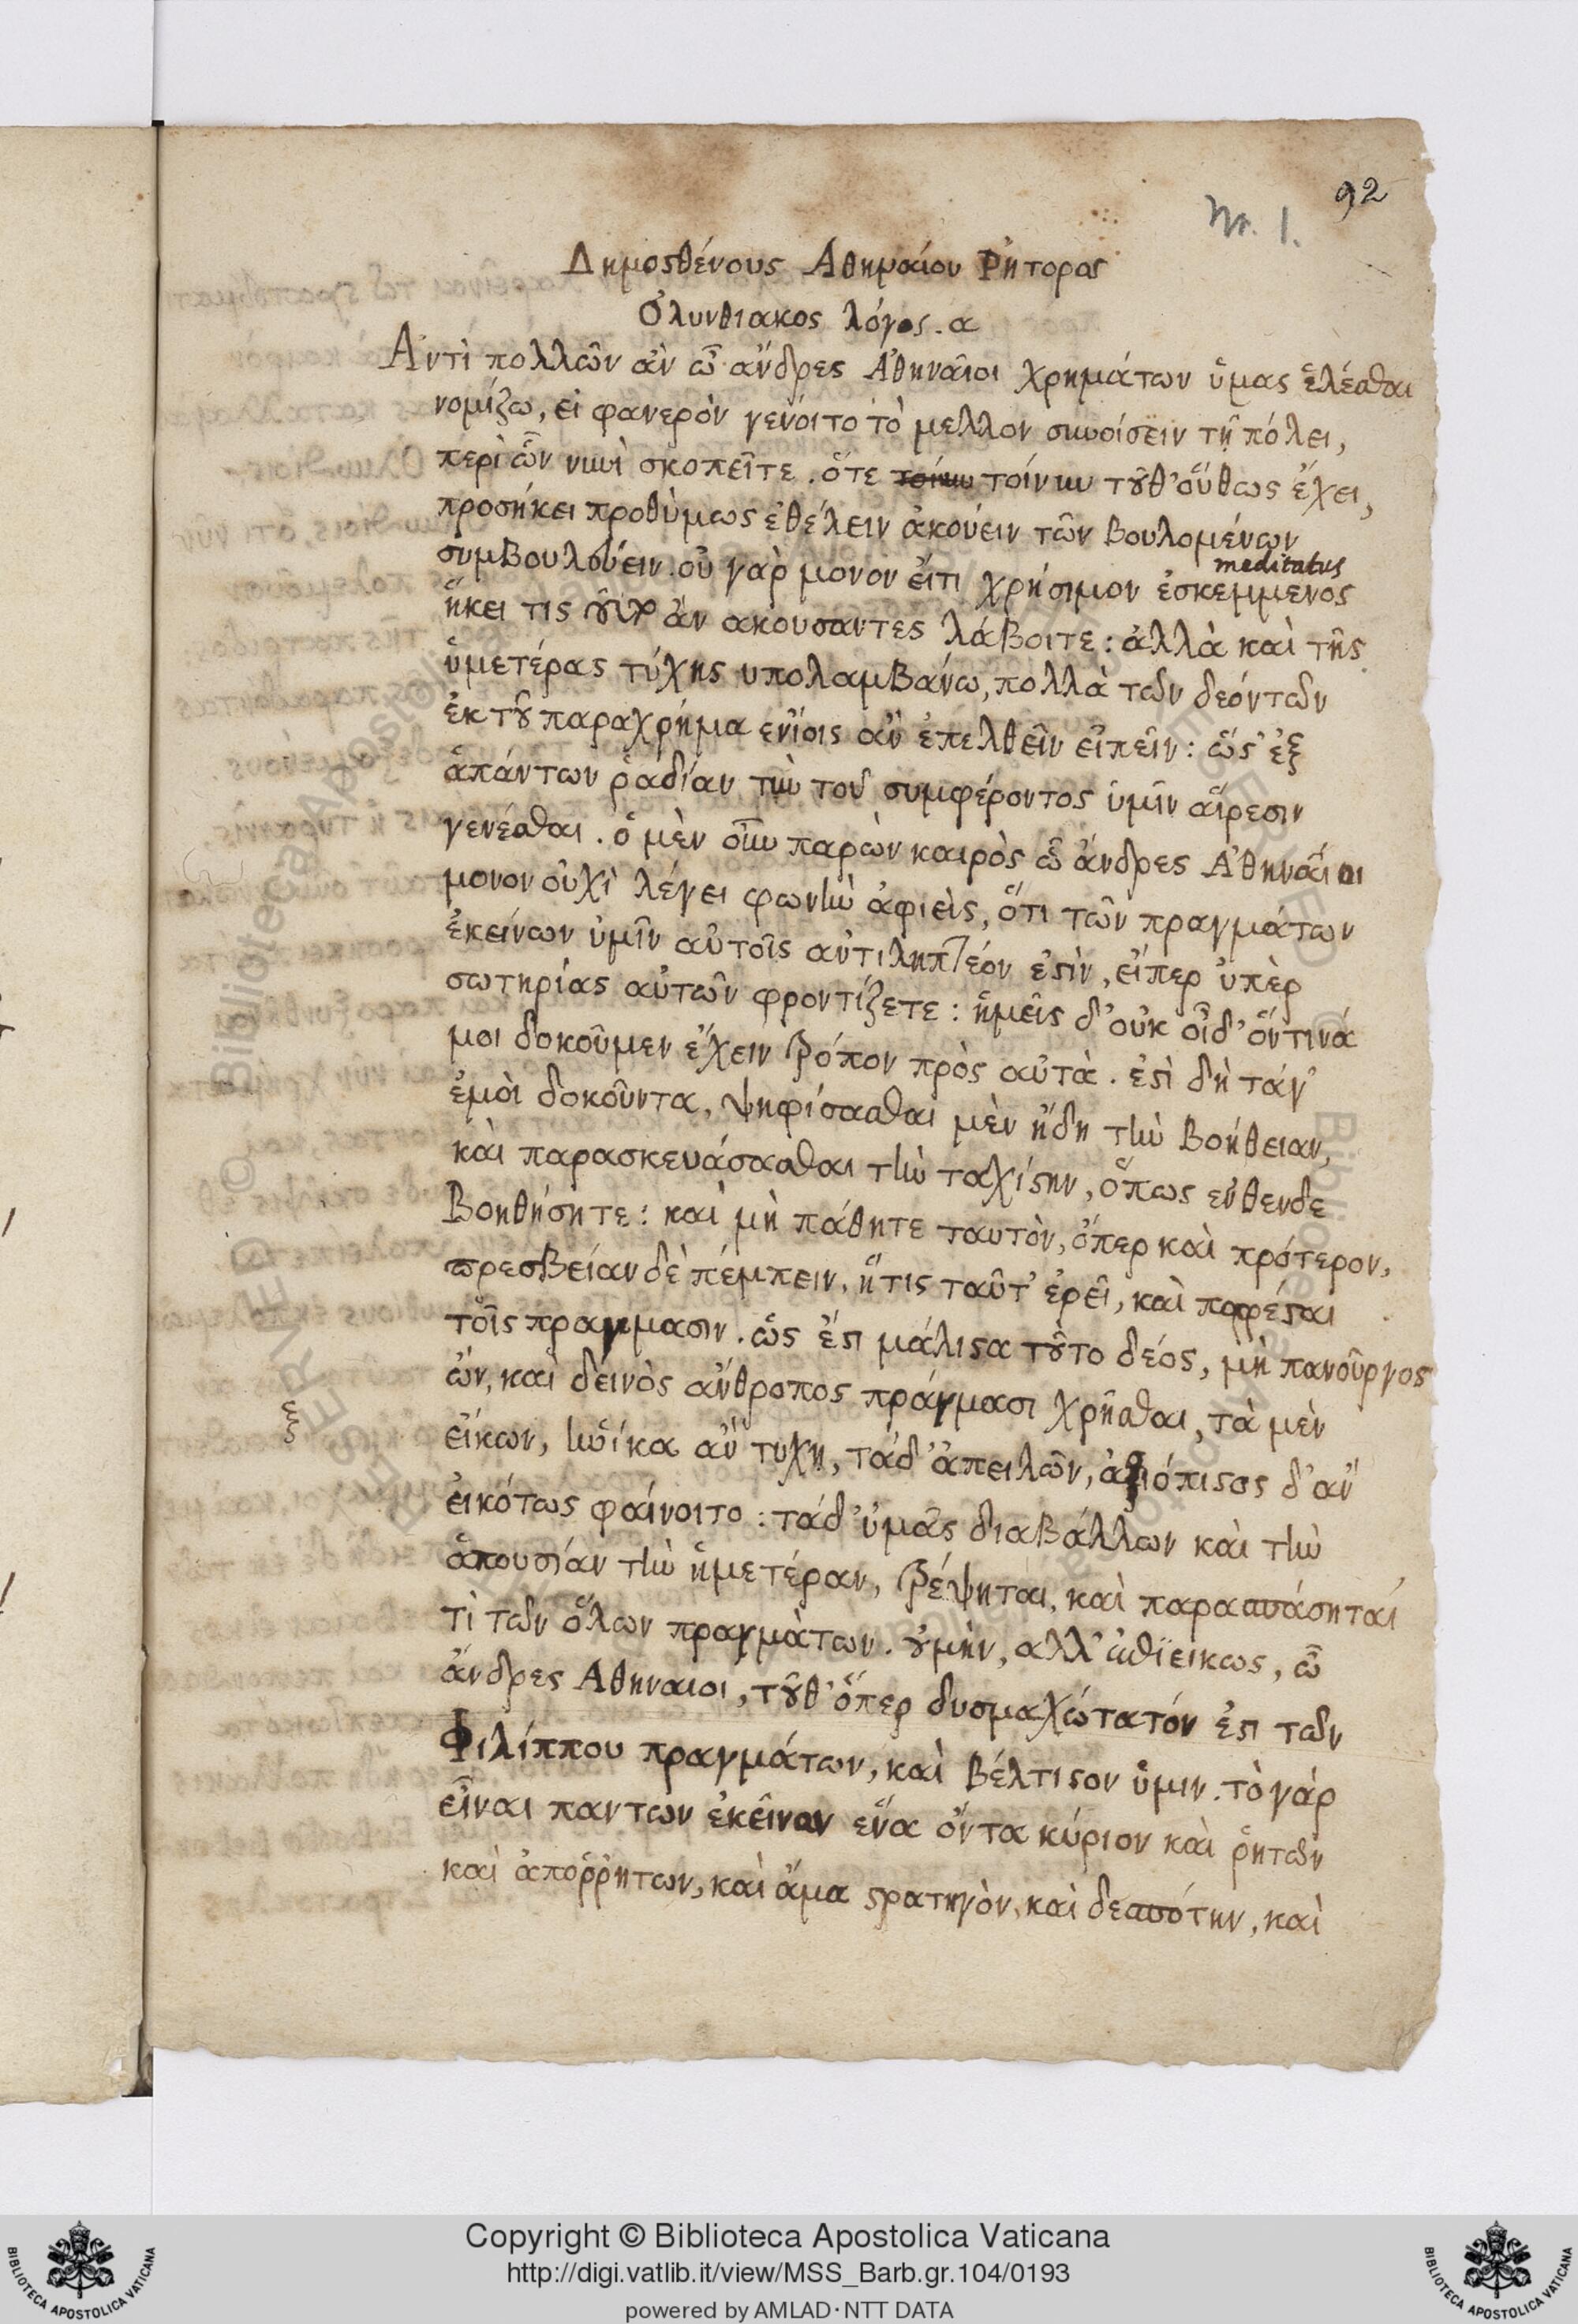 92
Nr. 1.
Δημοσθένους Αθηναίου Ῥήτορος
Ὀλυνθιακος λόγος. α
Ἀντὶ πολλῶν ἀν ὦ ἄνδρες Ἀθηναῖοι χρημάτων ὑμας ἑλέσθαι
νομίζω, εἰ φανερὸν γενόιτο τὸ μελλον συνοίσειν τῇ πόλει,
περὶ ὧν νυνὶ σκοπεῖτε. ὅτε τοίνυν τοίνυν τοῦθ' οὕθως ἔχει,
προσήκει προθύμως ἐθέλειν ἀκούειν τῶν βουλομένων
συμβουλεύειν. οὐ γὰρ μονον ἔιτι χρήσιμον ἐσκεμμενος
meditatus
ἥκει τις τοῦτ ἀν ακουσαντες λάβοιτε: ἀλλὰ καὶ τῆς
ὑμετέρας τύχης υπολαμβάνω, πολλὰ τῶν δεόντων
ἐκ τοῦ παραχρήμα ενίοις ἂν ἐπελθεῖν εἰπεῖν: ὥς' ἐξ
ἁπάντων ῥαδίαν τὴν τοῦ συμφέροντος ὑμῖν αἵρεσιν
γενέσθαι. ὁ μὲν οὖν παρὼν καιρὸς ὦ ἄνδρες Ἀθηναῖοι
μονον οὐχὶ λέγει φωνὴν ἀφιεὶς, ὅτι τῶν πραγμάτων
ἐκείνων ὑμῖν αὐτοῖς αὐτιληπτέον ἐστὶν, εἴπερ ὑπὲρ
σωτηρίας αὐτῶν φροντίζετε: ἡμεῖς δ' οὐκ οἶδ' ὅντινά
μοι δοκοῦμεν ἔχειν τρόπον πρὸς αὐτὰ. ἐστὶ δὴ τάγ'
ἐμοὶ δοκοῦντα, ψηφίσασθαι μὲν ἤδη τὴν βοήθειαν,
καὶ παρασκευάσασθαι τὴν ταχίστην, ὅπως ενθενδε
βοηθήσητε: καὶ μὴ πάθητε ταυτὸν, ὅπερ καὶ πρότερον,
πρεσβείαν δὲ πέμπειν, ἥτις ταῦτ' ἐρεῖ, καὶ παρέσται
τοῖς πραγμασιν. ὡς ἔστι μάλιστα τοῦτο δέος, μὴ πανοῦργος
ὢν, καὶ δεινὸς ἄνθροπος πράγμασι χρῆσθαι, τὰ μὲν
ξ
εἴκων, ἡνίκα ἂν τυχῃ, τάδ' ἀπειλῶν, ἀξιόπιστος δ' ἂν
εικότως φαίνοιτο: τάδ' ὑμᾶς διαβάλλων καὶ τὴν
ἀπουσίαν τὴν ἡμετέραν, τρέψηται, καὶ παρασπάσηται
τὶ τῶν ὅλων πραγμὰτων. οὐμὴν, αλλ' επιεικως, ὦ
ἄνδρες Αθηναιοι, τοῦθ' ὅπερ δυσμαχώτατόν ἐστι τῶν
Φιλίππου πραγμάτων, καὶ βέλτιστον ὑμιν. τὸ γάρ
εἶναι παντων ἐκεῖνον ἕνα ὄντα κύριον καὶ ῥητῶν
καὶ ἀποῤῥήτων, καὶ ἅμα στρατηγὸν, καὶ δεσπότην, καὶ
Copyright © Biblioteca Apostolica Vaticana
http://digi.vatlib.it/view/MSS_Barb.gr.104/0193
powered by AMLAD·NTT DATA